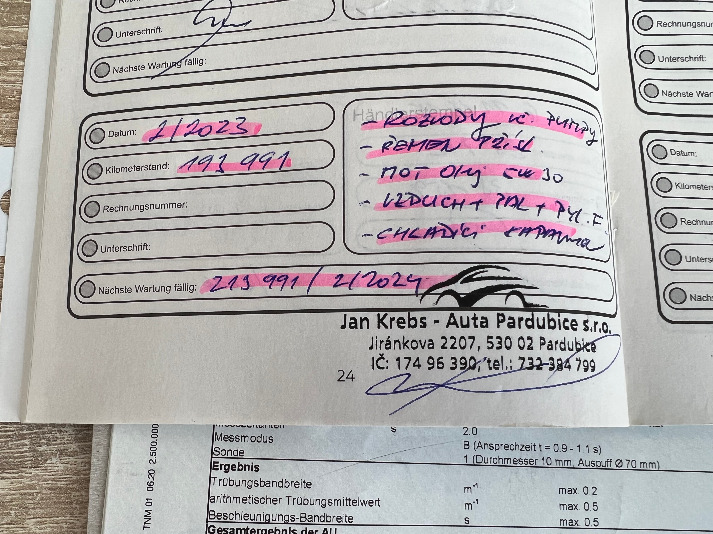 Unterschrift:
Nächste Wartung fällig:
Händlerstempel
Datum: 2/2023
Kilometerstand: 193 991
Rechnungsnummer:
Unterschrift:
Nächste Wartung fällig: 213 991 / 2/2024
- ROZVODY VČ. PUMPY
- ŘEMEN PŘÍSL.
- MOT OLEJ 5W30
- VZDUCH + PAL + PYL. F
- CHLADÍCÍ KAPALINA
Jan Krebs - Auta Pardubice s.r.o.
Jiránkova 2207, 530 02 Pardubice
IČ: 174 96 390, tel.: 732 384 799
24
Rechnungsnur
Unterschrift:
Nächste War
Datum:
Kilometer
Rechnu
Unters
Nächs
TNM 01 06.20 2.500.000
s 2.0
Messmodus B (Ansprechzeit t = 0.9 - 1.1 s)
Sonde 1 (Durchmesser 10 mm, Auspuff Ø 70 mm)
Ergebnis
Trübungsbandbreite m⁻¹ max. 0.2
arithmetischer Trübungsmittelwert m⁻¹ max. 0.5
Beschleunigungs-Bandbreite s max. 0.5
Gesamtergebnis der AU